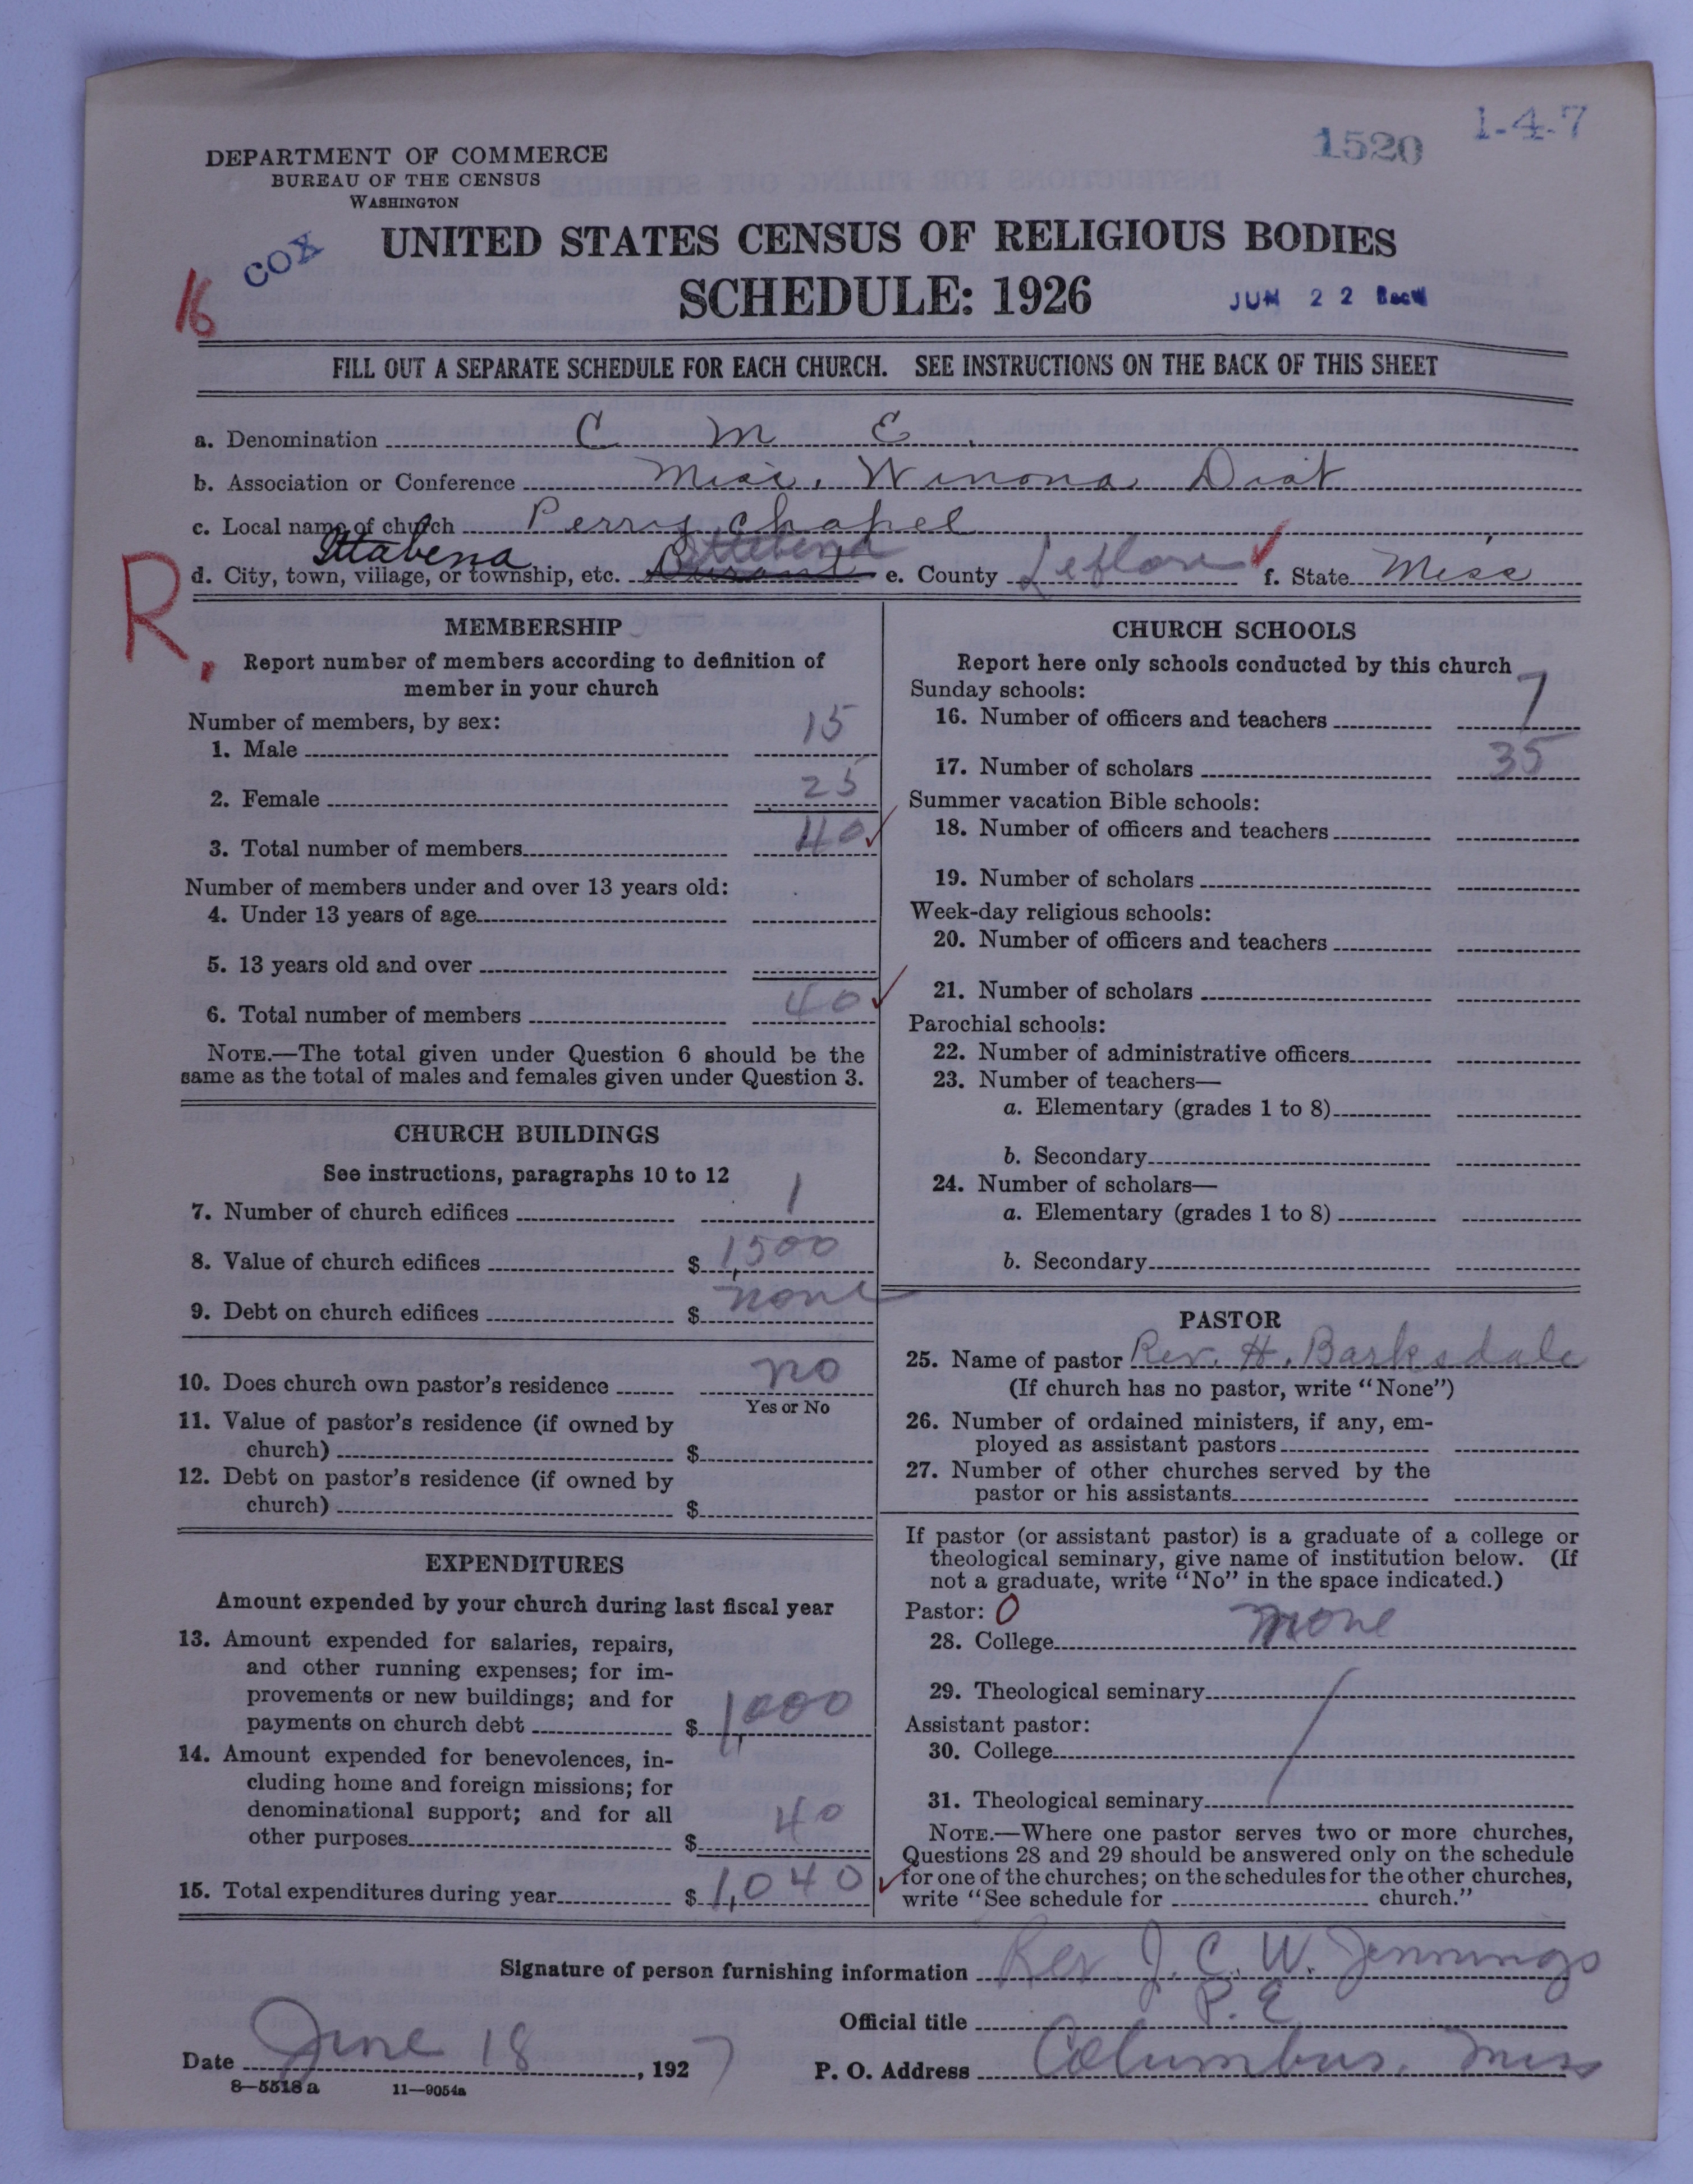 1520 1-4-7
DEPARTMENT OF COMMERCE
BUREAU OF THE CENSUS
WASHINGTON
COX
16
UNITED STATES CENSUS OF RELIGIOUS BODIES
SCHEDULE: 1926
JUN 22 Rec'd
FILL OUT A SEPARATE SCHEDULE FOR EACH CHURCH. SEE INSTRUCTIONS ON THE BACK OF THIS SHEET
a. Denomination C M E.
b. Association or Conference Miss. Winona Dist
c. Local name of church Perry Chapel
Ittabena Ittebena
d. City, town, village, or township, etc. Durant e. County Leflore f. State Miss
R,
MEMBERSHIP
Report number of members according to definition of
member in your church
Number of members, by sex:
1. Male 15
2. Female 25
3. Total number of members 40
Number of members under and over 13 years old:
4. Under 13 years of age
5. 13 years old and over
6. Total number of members 40
NOTE.—The total given under Question 6 should be the
same as the total of males and females given under Question 3.
CHURCH BUILDINGS
See instructions, paragraphs 10 to 12
7. Number of church edifices 1
8. Value of church edifices $ 1,500
9. Debt on church edifices $ none
10. Does church own pastor's residence no
Yes or No
11. Value of pastor's residence (if owned by
church) $
12. Debt on pastor's residence (if owned by
church) $
EXPENDITURES
Amount expended by your church during last fiscal year
13. Amount expended for salaries, repairs,
and other running expenses; for im-
provements or new buildings; and for
payments on church debt $ 1,000
14. Amount expended for benevolences, in-
cluding home and foreign missions; for
denominational support; and for all
other purposes $ 40
15. Total expenditures during year $ 1,040
CHURCH SCHOOLS
Report here only schools conducted by this church
Sunday schools:
16. Number of officers and teachers 7
17. Number of scholars 35
Summer vacation Bible schools:
18. Number of officers and teachers
19. Number of scholars
Week-day religious schools:
20. Number of officers and teachers
21. Number of scholars
Parochial schools:
22. Number of administrative officers
23. Number of teachers—
a. Elementary (grades 1 to 8)
b. Secondary
24. Number of scholars—
a. Elementary (grades 1 to 8)
b. Secondary
PASTOR
25. Name of pastor Rev. H. Barksdale
(If church has no pastor, write "None")
26. Number of ordained ministers, if any, em-
ployed as assistant pastors
27. Number of other churches served by the
pastor or his assistants
If pastor (or assistant pastor) is a graduate of a college or
theological seminary, give name of institution below. (If
not a graduate, write "No" in the space indicated.)
Pastor: 0
28. College none
29. Theological seminary
Assistant pastor:
30. College
31. Theological seminary
NOTE.—Where one pastor serves two or more churches,
Questions 28 and 29 should be answered only on the schedule
for one of the churches; on the schedules for the other churches,
write "See schedule for church."
Signature of person furnishing information Rev. J. C. W. Jennings
Official title P. E
Date June 18, 1927 P. O. Address Columbus, Miss
8—5518 a 11—9054a